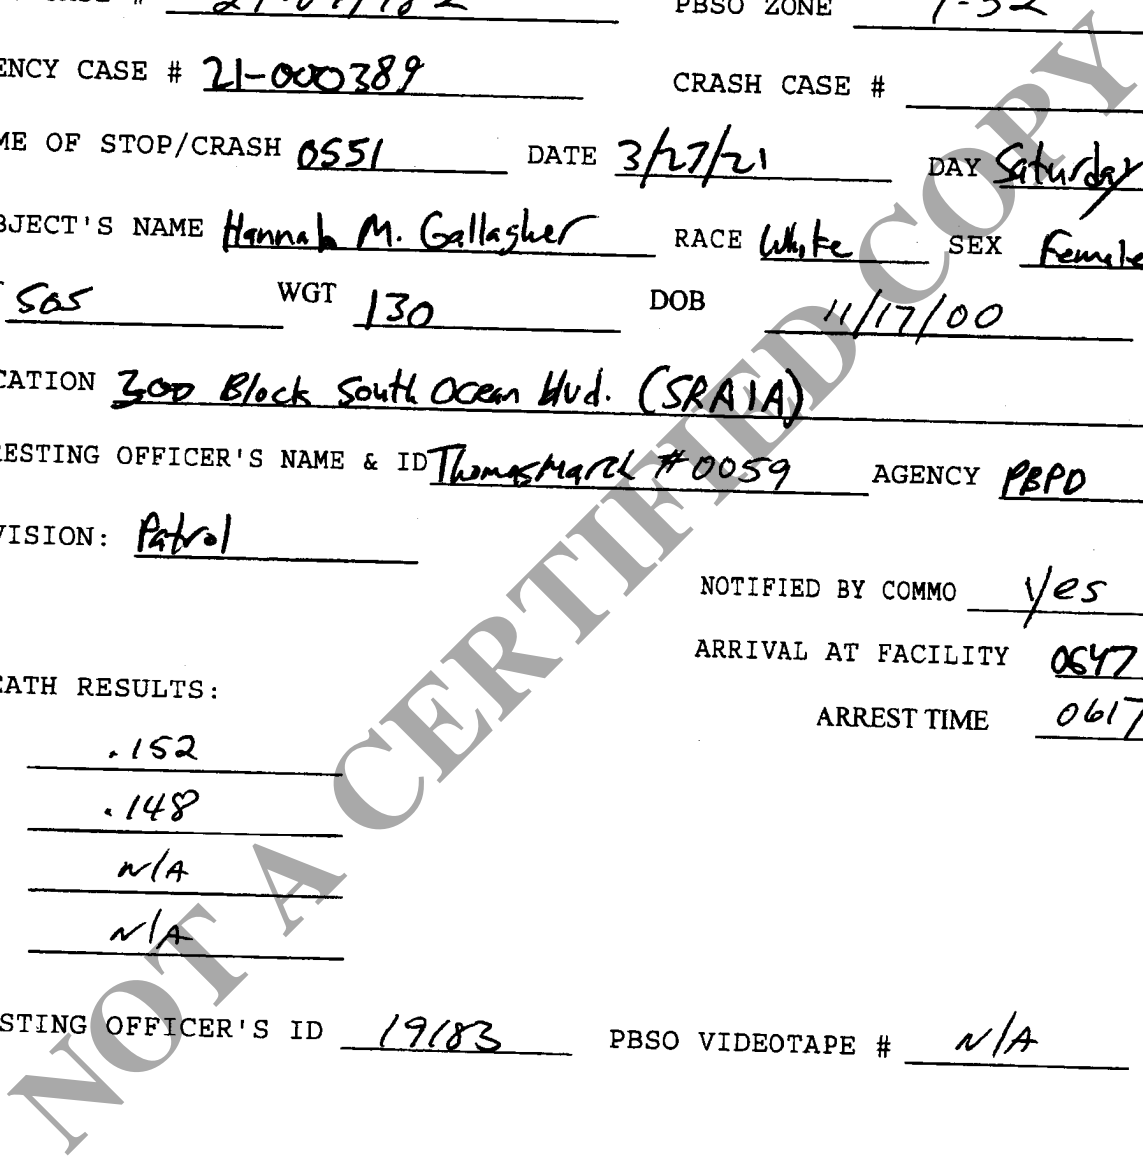 PBSO ZONE
ENCY CASE # 21-000389 CRASH CASE #
ME OF STOP/CRASH 0551 DATE 3/27/21 DAY Saturday
BJECT'S NAME Hannah M. Gallagher RACE White SEX Female
505 WGT 130 DOB 11/17/00
CATION 300 Block South Ocean blvd. (SRA1A)
RESTING OFFICER'S NAME & ID Thomas March #0059 AGENCY PBPD
VISION: Patrol
NOTIFIED BY COMMO yes
ARRIVAL AT FACILITY 0647
EATH RESULTS:
ARREST TIME 0617
.152
.148
N/A
N/A
STING OFFICER'S ID 19183 PBSO VIDEOTAPE # N/A
NOT A CERTIFIED COPY